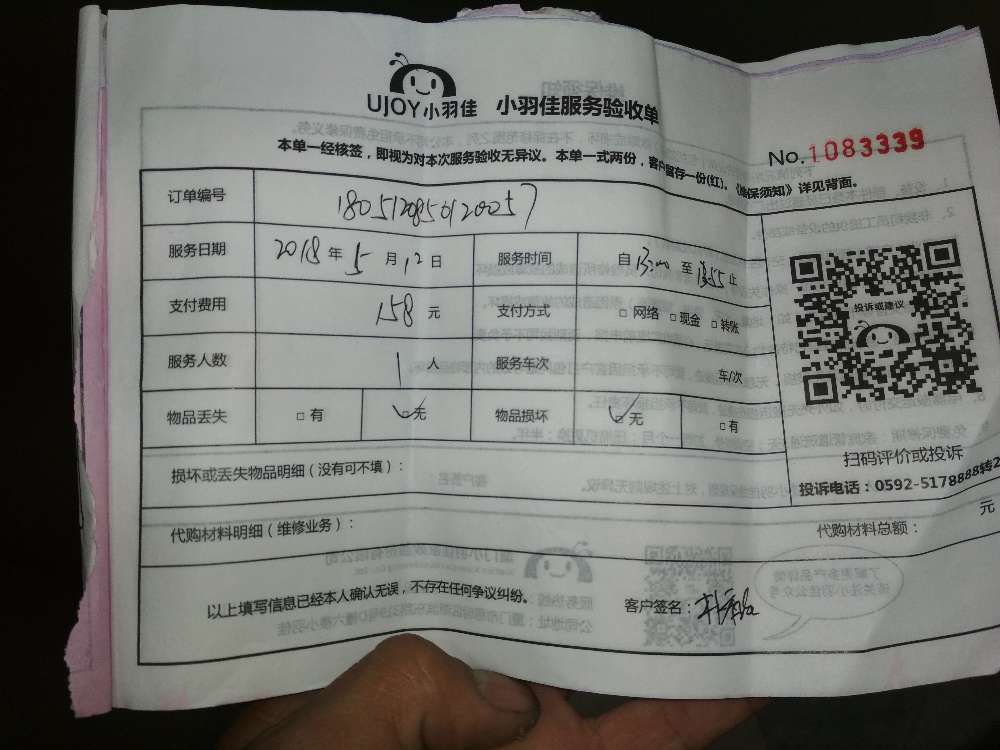 UJOY小羽佳 小羽佳服务验收单
No.1083339
本单一经核签，即视为对本次服务验收无异议。本单一式两份，客户留存一份(红)。《维保须知》详见背面。
订单编号 1805120850120057
服务日期 2018年5月12日 服务时间 自13:00至13:55止
支付费用 158元 支付方式 □网络 □现金 □转账
服务人数 1人 服务车次 车/次
物品丢失 □有 ☑无 物品损坏 ☑无 □有
投诉或建议
扫码评价或投诉
投诉电话：0592-5178888转2
损坏或丢失物品明细（没有可不填）：
元
代购材料明细（维修业务）： 代购材料总额：
以上填写信息已经本人确认无误，不存在任何争议纠纷。 客户签名：